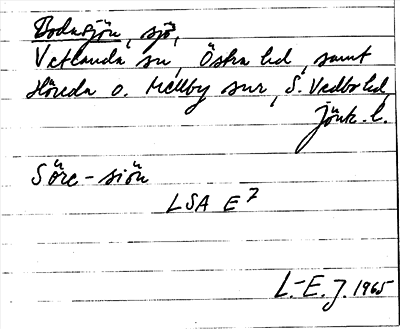 Bodasjön, sjö,
Vetlanda sn, Östra hd, samt
Höreda o. Mellby snr, S. Vedbo hd
Jönk. l.
Söre-siön
LSA E7
L.-E. J. 1965